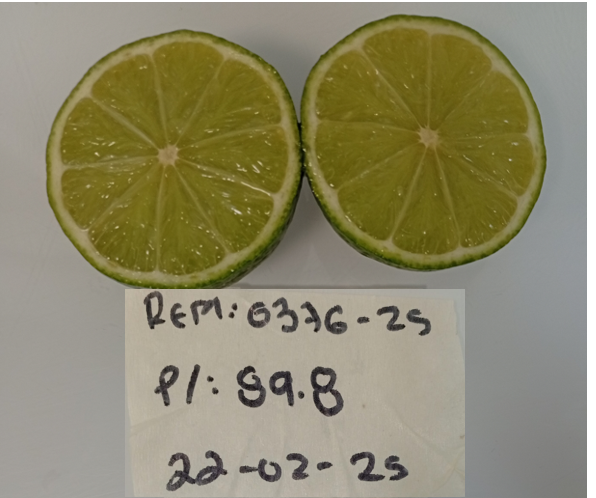 REM: 0376-25
P/: 89.8
22-02-25